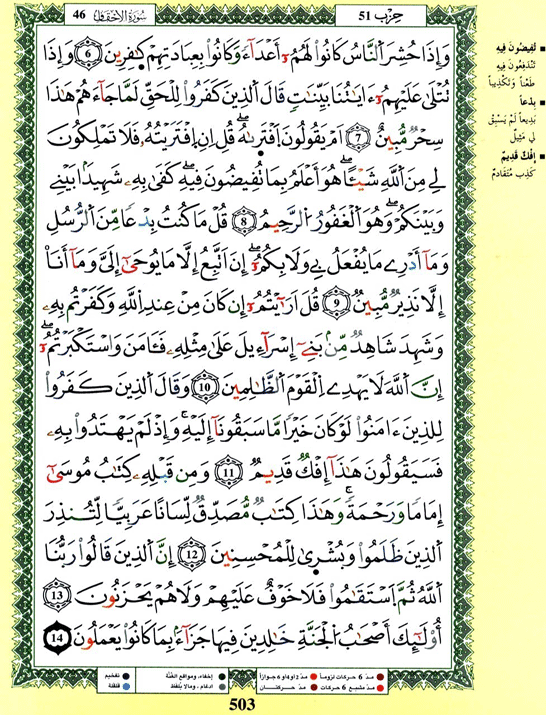 حِزْب 51
سُورَةُ الأَحْقَاف 46
وَإِذَا حُشِرَ اَ۬لنَّاسُ كَانُواْ لَهُمُۥٓ أَعْدَآءٗ وَكَانُواْ بِعِبَادَتِهِمْ كَٰفِرِينَۖ 6 وَإِذَا
تُتْل۪ىٰ عَلَيْهِمُۥٓ ءَايَٰتُنَا بَيِّنَٰتٖ قَالَ اَ۬لذِينَ كَفَرُواْ لِلْحَقِّ لَمَّا جَآءَهُمْ هَٰذَا
سِحْرٞ مُّبِينٌۖ 7 اَمْ يَقُولُونَ اَ۪فْتَر۪ىٰهُۖ قُلِ اِنِ اِ۪فْتَرَيْتُهُۥ فَلَا تَمْلِكُونَ
لِے مِنَ اَ۬للَّهِ شَيْـٔاًۖ هُوَ أَعْلَمُ بِمَا تُفِيضُونَ فِيهِۖ كَف۪ىٰ بِهِۦ شَهِيدَۢا بَيْنِے
وَبَيْنَكُمْۖ وَهُوَ اَ۬لْغَفُورُ اُ۬لرَّحِيمُۖ 8 قُلْ مَا كُنتُ بِدْعاٗ مِّنَ اَ۬لرُّسُلِ
وَمَآ أَدْرِے مَا يُفْعَلُ بِے وَلَا بِكُمُۥٓۖ إِنَ اَتَّبِعُ إِلَّا مَا يُوح۪ىٰٓ إِلَيَّ وَمَآ أَنَا۠
إِلَّا نَذِيرٞ مُّبِينٞۖ 9 قُلَ اَرَٰٓيْتُمُۥٓ إِن كَانَ مِنْ عِندِ اِ۬للَّهِ وَكَفَرْتُم بِهِۦ
وَشَهِدَ شَاهِدٞ مِّنۢ بَنِےٓ إِسْرَآءِيلَ عَلَىٰ مِثْلِهِۦ فَـَٔامَنَ وَاسْتَكْبَرْتُمُۥٓۖ
إِنَّ اَ۬للَّهَ لَا يَهْدِے اِ۬لْقَوْمَ اَ۬لظَّٰلِمِينَۖ 10 وَقَالَ اَ۬لذِينَ كَفَرُواْ
لِلذِينَ ءَامَنُواْ لَوْ كَانَ خَيْراٗ مَّا سَبَقُونَآ إِلَيْهِۖ وَإِذْ لَمْ يَهْتَدُواْ بِهِۦ
فَسَيَقُولُونَ هَٰذَآ إِفْكٞ قَدِيمٞۖ 11 وَمِن قَبْلِهِۦ كِتَٰبُ مُوس۪ىٰٓ
إِمَاماٗ وَرَحْمَةٗۖ وَهَٰذَا كِتَٰبٞ مُّصَدِّقٞ لِّسَاناً عَرَبِيّاٗ لِّتُنذِرَ
اَ۬لذِينَ ظَلَمُواْ وَبُشْر۪ىٰ لِلْمُحْسِنِينَۖ 12 إِنَّ اَ۬لذِينَ قَالُواْ رَبُّنَا
اَ۬للَّهُ ثُمَّ اَ۪سْتَقَٰمُواْ فَلَا خَوْفٌ عَلَيْهِمْ وَلَا هُمْ يَحْزَنُونَۖ 13
أُوْلَٰٓئِكَ أَصْحَٰبُ اُ۬لْجَنَّةِ خَٰلِدِينَ فِيهَا جَزَآءَۢ بِمَا كَانُواْ يَعْمَلُونَۖ 14
▪ تُفِيضُونَ فِيهِ
تَنْدَفِعُونَ فِيهِ
طَعْناً وَتَكْذِيباً
▪ بِدْعاً
بَدِيعاً لَمْ يَسْبِقْ
لِي مَثِيلٌ
▪ إِفْكٌ قَدِيمٌ
كَذِبٌ مُتَقَادِمٌ
● مدّ 6 حركات لزوماً ● مدّ 2 أو 4 أو 6 جوازاً ● إخفاء، ومواقع الغُنَّة ● تفخيم
● مدّ مشبع 6 حركات ● مدّ حركتان ● ادغام، وما لا يُلفظ ● قلقلة
503